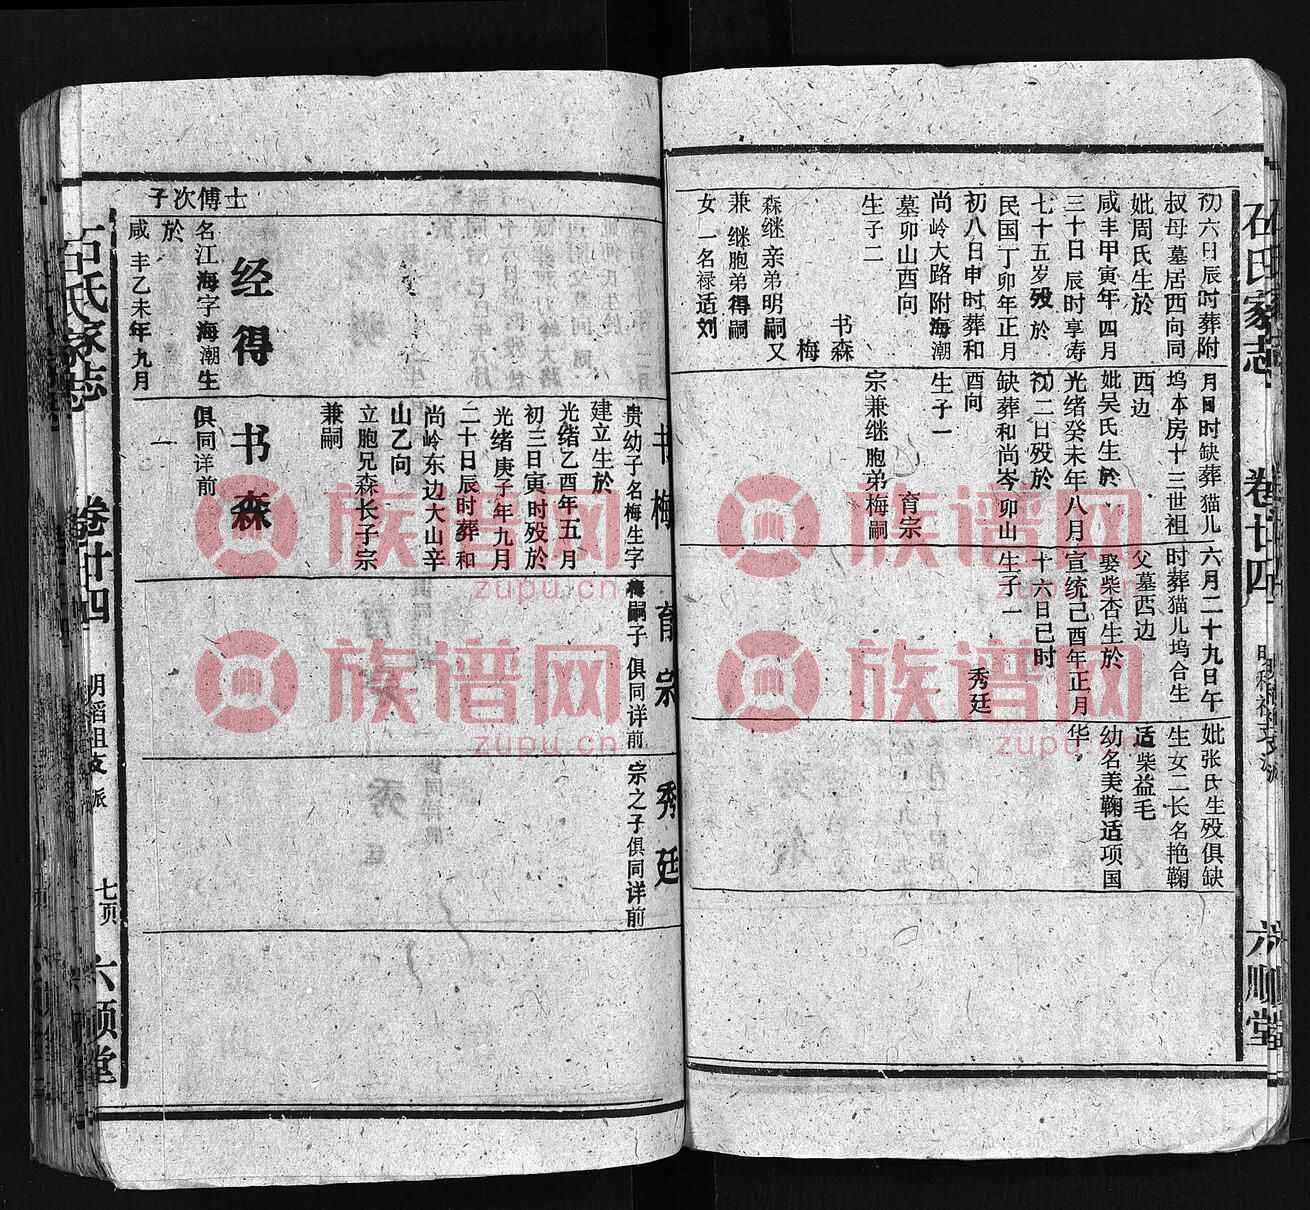 石氏家志
卷廿四
六顺堂
初六日辰时葬附
叔母墓居西向同
妣周氏生於
咸丰甲寅年四月
三十日辰时享寿
七十五岁殁於
民国丁卯年正月
初八日申时葬和
尚岭大路附海潮
墓卯山酉向
生子二
书森
梅
森继亲弟明嗣又
兼继胞弟得嗣
女一名禄适刘
月日时缺葬猫儿
坞本房十三世祖
西边
妣吴氏生於
光绪癸未年八月
初二日殁於
缺葬和尚岑卯山
酉向
生子一
育宗
宗兼继胞弟梅嗣
六月二十九日午
时葬猫儿坞合生
父墓西边
娶柴杏生於
宣统己酉年正月
十六日巳时
生子一
秀廷
妣张氏生殁俱缺
生女二长名艳鞠
适柴益毛
幼名美鞠适项国
华
书梅
贵幼子名梅生字
建立生於
光绪乙酉年五月
初三日寅时殁於
光绪庚子年九月
二十日辰时葬和
尚岭东边大山辛
山乙向
立胞兄森长子宗
兼嗣
育宗
梅嗣子俱同详前
秀廷
宗之子俱同详前
士傅次子
经得
名江海字海潮生
於
咸丰乙未年九月
书森
俱同详前
一
石氏家志
卷廿四
明稻祖支派
七页
六顺堂
族谱网
zupu.cn
族谱网
zupu.cn
族谱网
zupu.cn
族谱网
zupu.cn